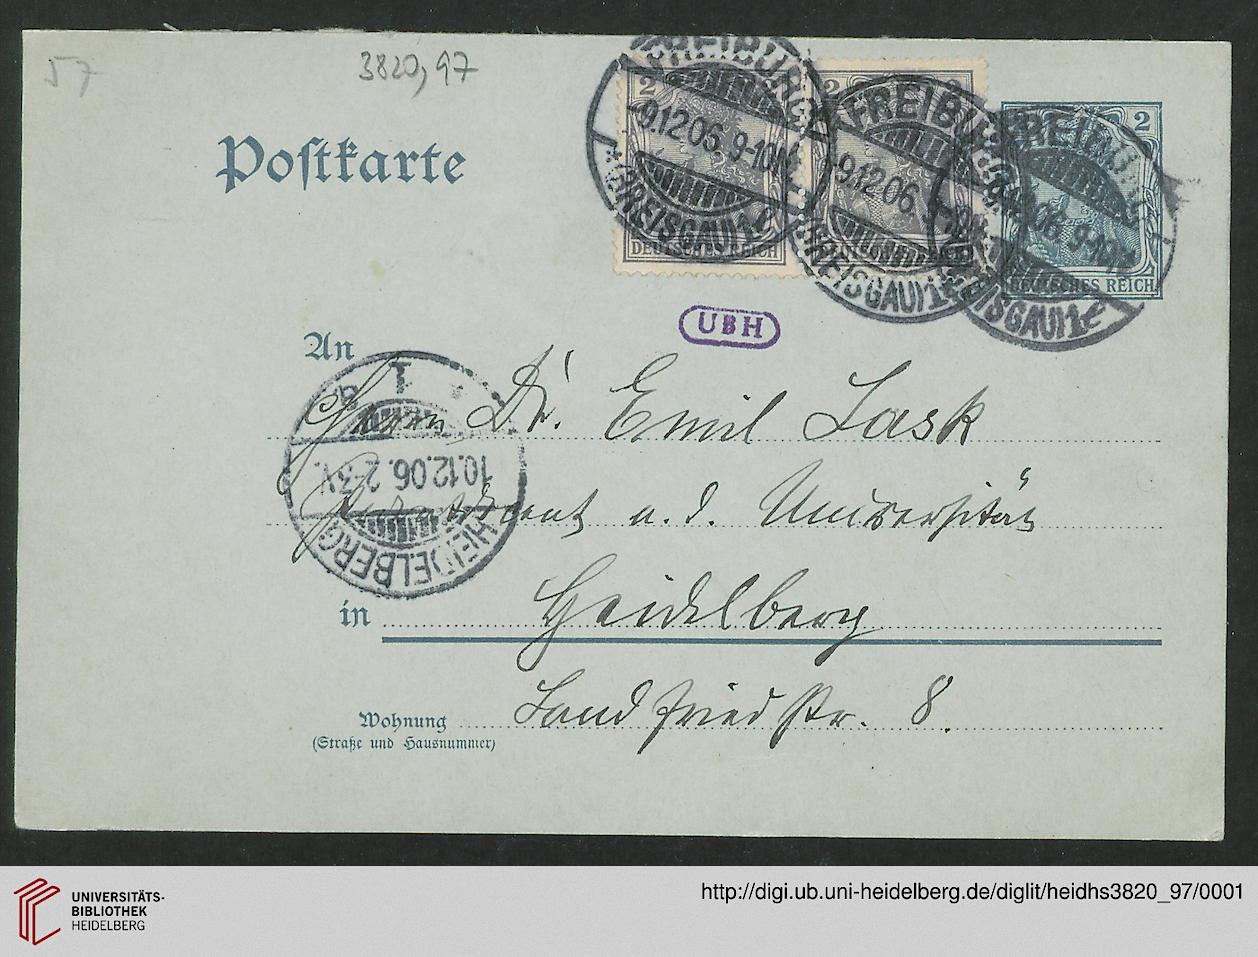 57
3820,97
Postkarte
FREIBURG
9.12.06. 9-10N.
*(BREISGAU)1.
2
DEUTSCHES REICH
FREIBURG
9.12.06.
(BREISGAU)1
2
DEUTSCHES REICH
FREIBURG
06. 9-10N
BREISGAU)1
2
DEUTSCHES REICH
UBH
An
Herrn Dr. Emil Lask
Privatdozent a. d. Universität
HEIDELBERG
10.12.06. 2-3V.
1
in Heidelberg
Wohnung Landfriedstr. 8.
(Straße und Hausnummer)
UNIVERSITÄTS-
BIBLIOTHEK
HEIDELBERG
http://digi.ub.uni-heidelberg.de/diglit/heidhs3820_97/0001